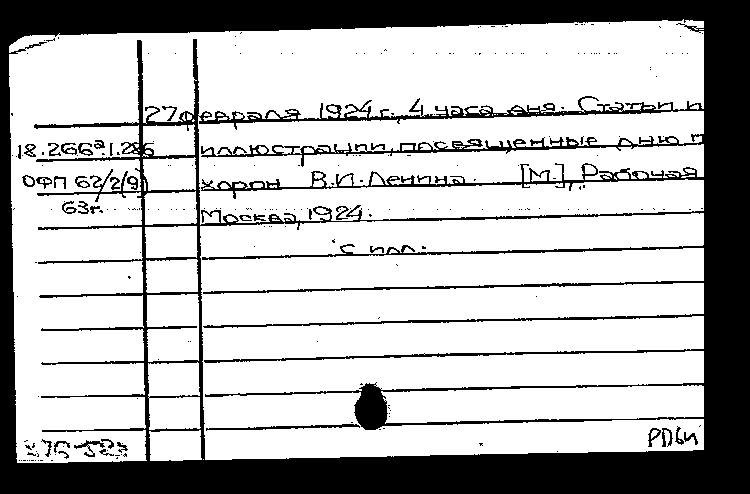 27 февраля 1924 г., 4 часа дня. Статьи и
18.266а.1.286 иллюстрации, посвященные дню п
ОФП 62/2(9) хорон В.И. Ленина. [М.], Рабочая
63г. Москва, 1924.
с илл.
РД6и